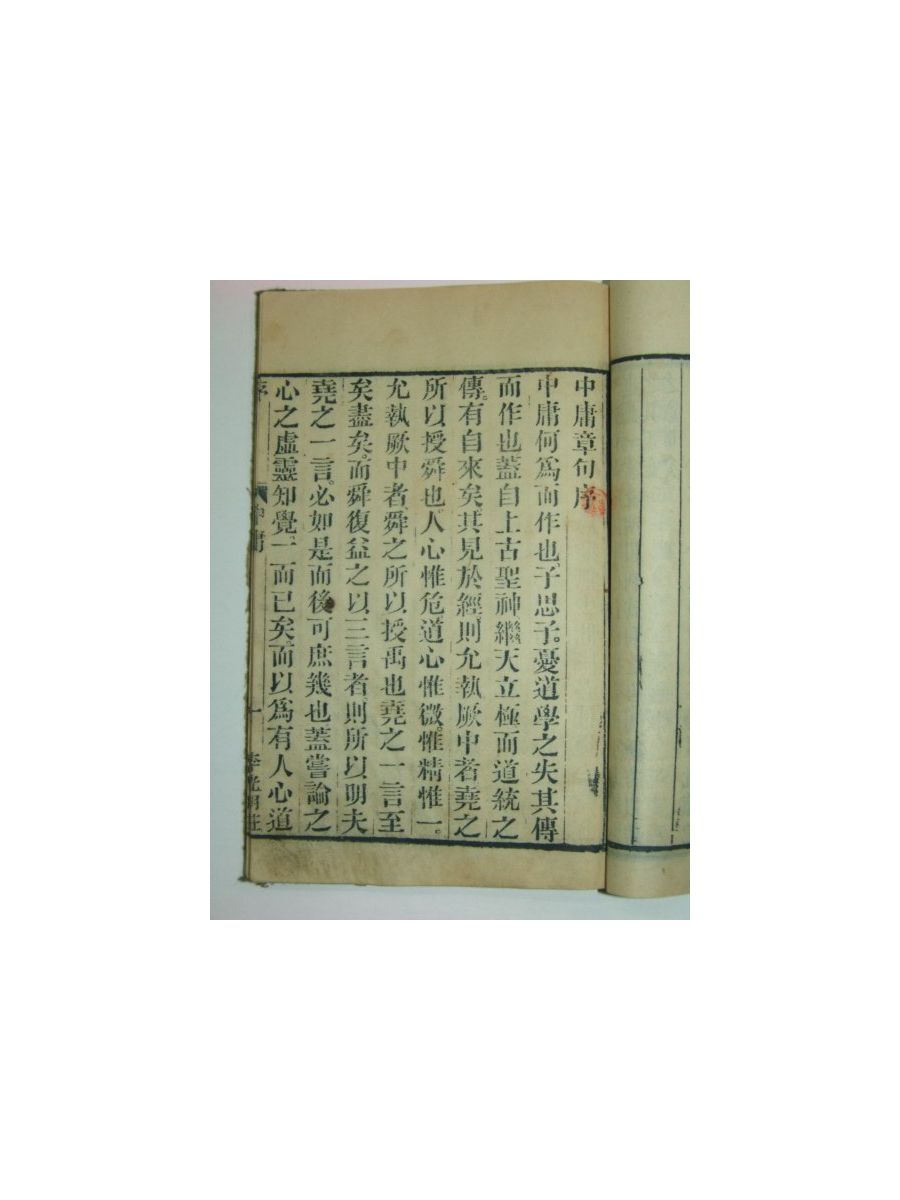 中庸章句序
中庸何爲而作也子思子。憂道學之失其傳
而作也蓋自上古聖神繼天立極而道統之
傳。有自來矣其見於經則允執厥中者堯之
所以授舜也人心惟危道心惟微。惟精惟一。
允執厥中者舜之所以授禹也堯之一言至
矣盡矣。而舜復益之以三言者則所以明夫
堯之一言。必如是而後可庶幾也蓋嘗論之
心之虛靈知覺。一而已矣。而以爲有人心道
序 中庸 一 李光明莊